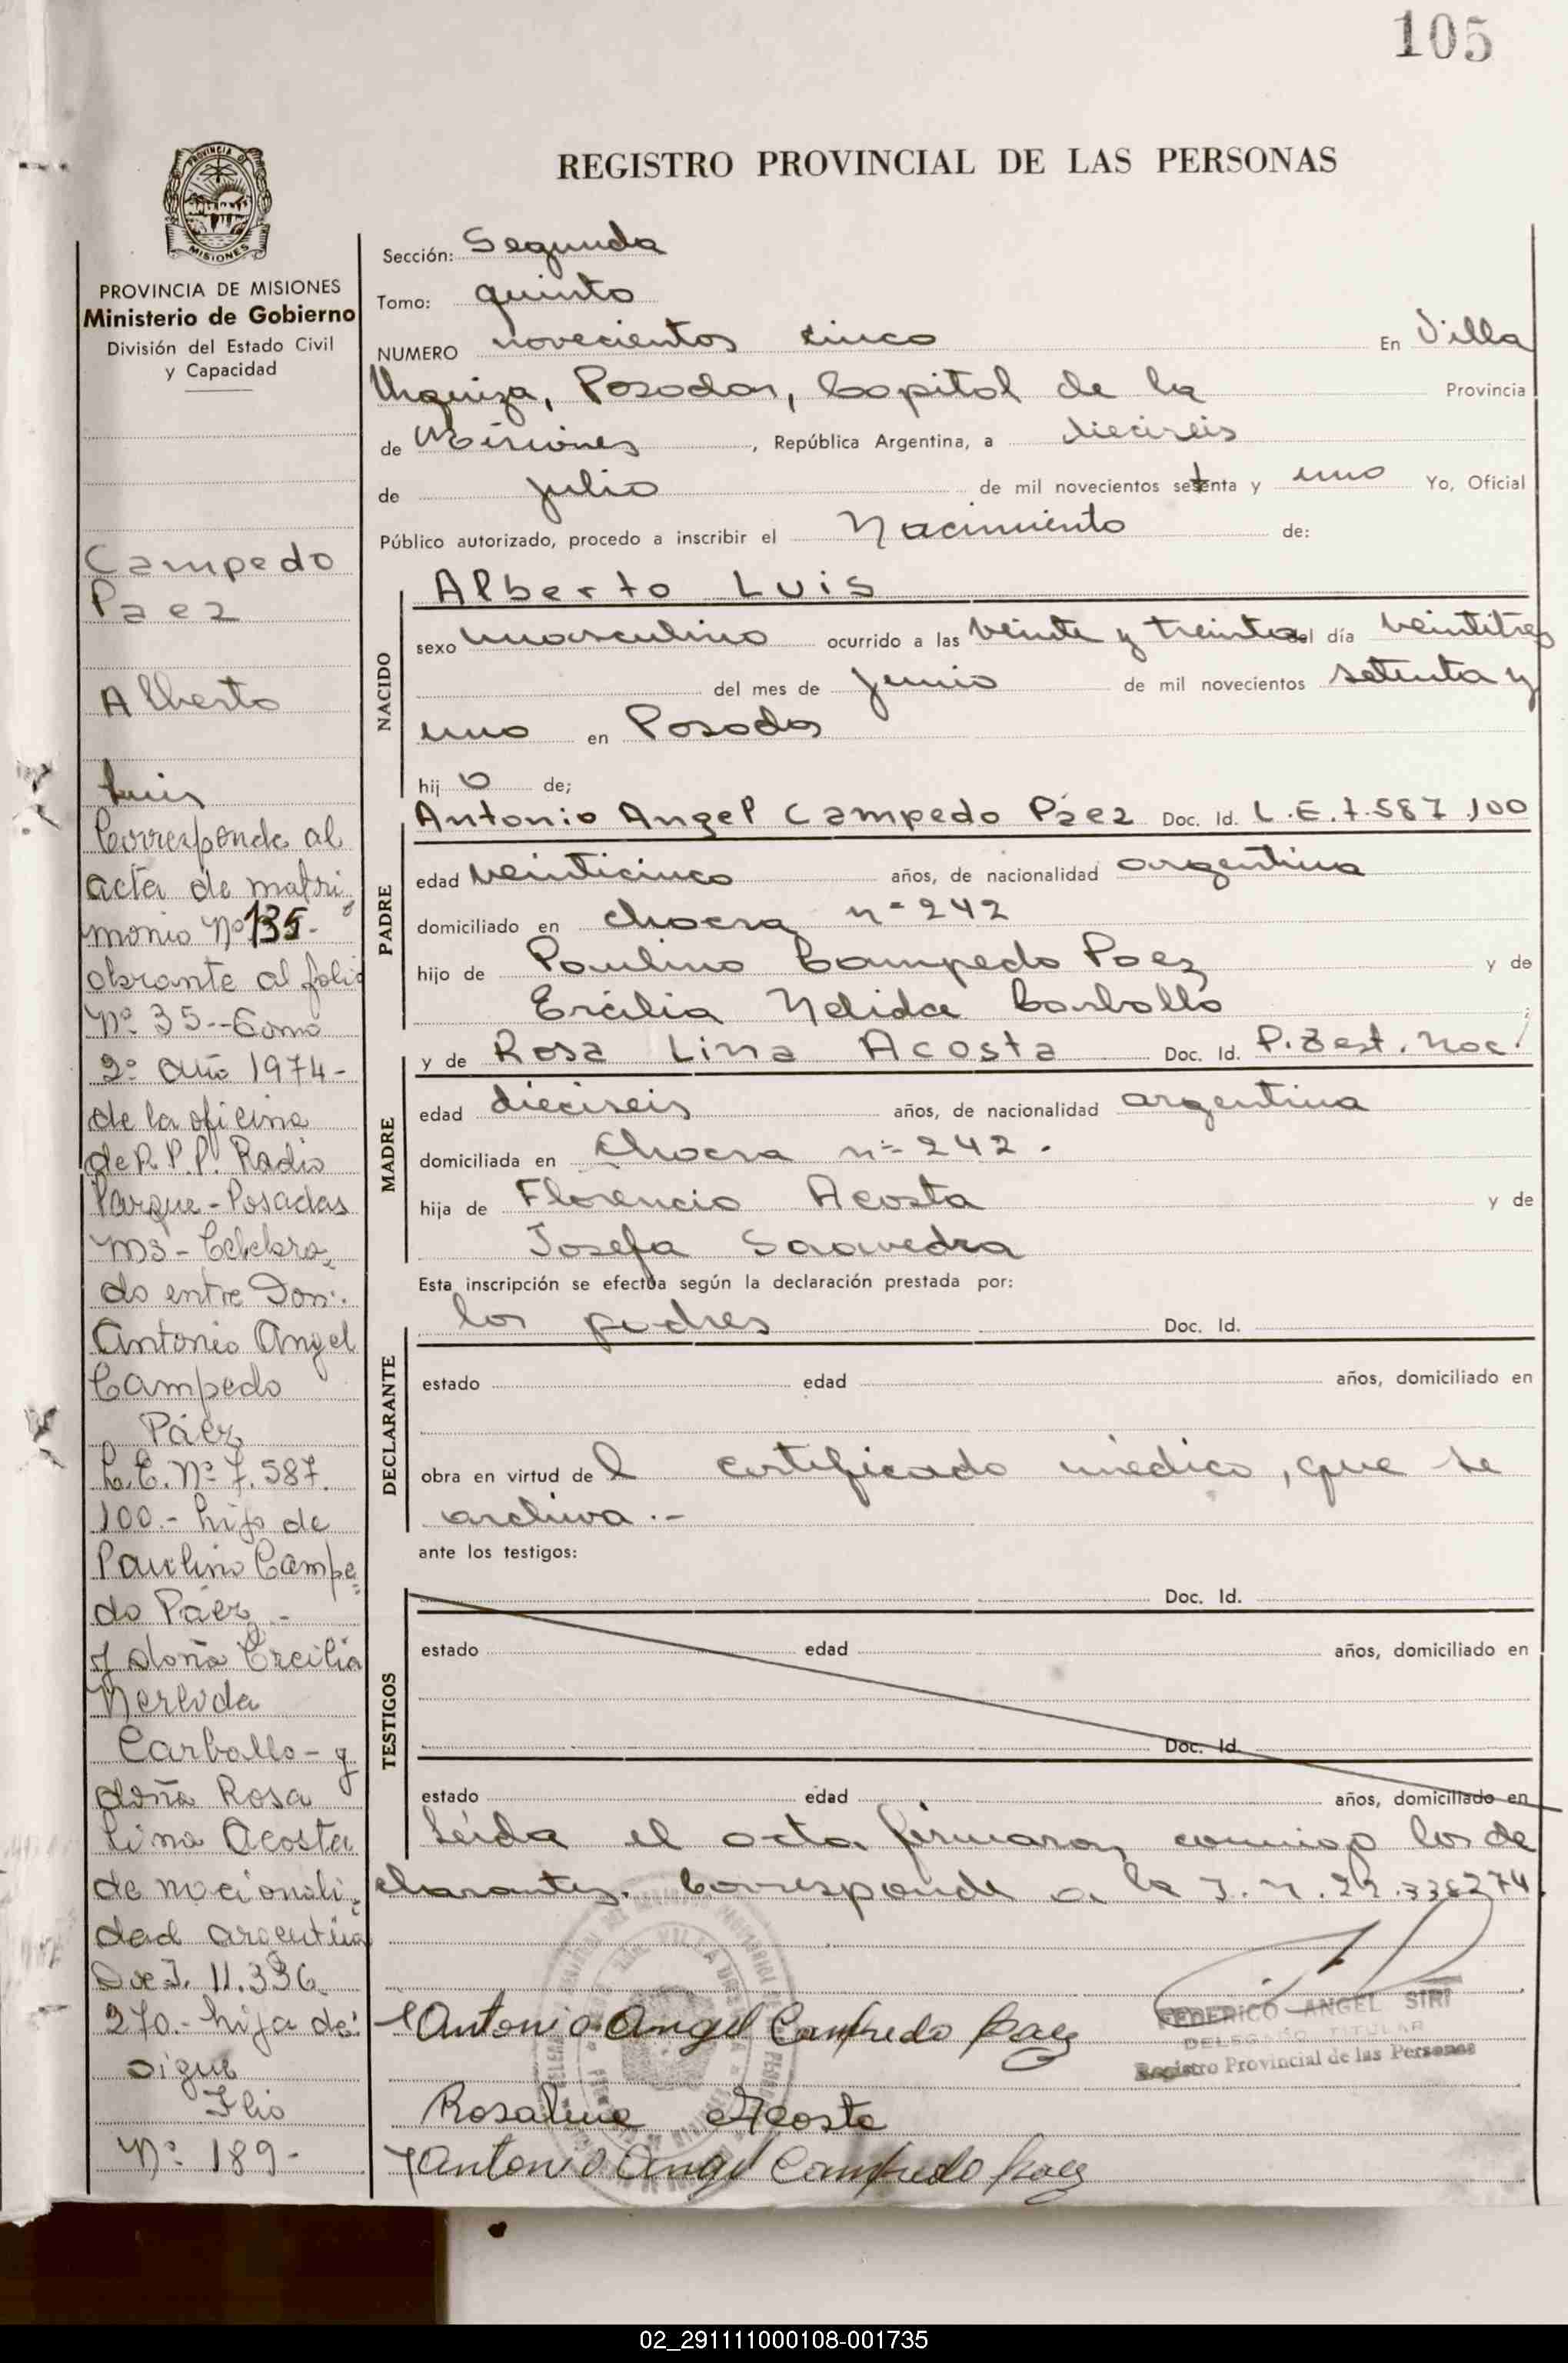 105
REGISTRO PROVINCIAL DE LAS PERSONAS
PROVINCIA DE
MISIONES
PROVINCIA DE MISIONES
Ministerio de Gobierno
División del Estado Civil
y Capacidad
Campedo
Paez
Alberto
Luis
Corresponde al
acta de matri
monio Nº 135.-
obrante al folio
Nº 35.- Tomo
2º año 1974-
de la oficina
de R.P.P. Radio
Parque - Posadas
Ms - Celebra
do entre Don:
Antonio Angel
Campedo
Páez
L.E. Nº 7.587.
100.- hijo de
Paulino Campe
do Páez -
y doña Ercilia
Nerlida
Carballo - y
doña Rosa
Lina Acosta
de nacionali
dad argentina
Doc I. 11.336.
270.- hija de:
sigue
Flio
Nº 189-
Sección: Segunda
Tomo: quinto
NUMERO novecientos cinco En Villa
Urquiza, Posadas, Capital de la Provincia
de Misiones, República Argentina, a dieciseis
de julio de mil novecientos setenta y uno Yo, Oficial
Público autorizado, procedo a inscribir el Nacimiento de:
NACIDO
Alberto Luis
sexo masculino ocurrido a las veinte y treinta del día veintitres
del mes de junio de mil novecientos setenta y
uno en Posadas
hijo de;
PADRE
Antonio Angel Campedo Páez Doc. Id. L.E. 7.587.100
edad veinticinco años, de nacionalidad argentina
domiciliado en chacra nº 242
hijo de Paulino Campedo Paez y de
Ercilia Nelida Carballo
MADRE
y de Rosa Lina Acosta Doc. Id. P. Nac.
edad dieciseis años, de nacionalidad argentina
domiciliada en Chacra nº 242.
hija de Florencio Acosta y de
Josefa Saavedra
Esta inscripción se efectúa según la declaración prestada por:
DECLARANTE
los padres Doc. Id.
estado edad años, domiciliado en
obra en virtud del certificado médico, que se
archiva.-
ante los testigos:
TESTIGOS
Doc. Id.
estado edad años, domiciliado en
Doc. Id.
estado edad años, domiciliado en
Leída el acta, firmaron conmigo los de
clarantes. Corresponde a la
FEDERICO ANGEL SIRI
DELEGADO TITULAR
Registro Provincial de las Personas
Antonio Angel Campedo Paez
Rosalina Acosta
Antonio Angel Campedo Paez
02_291111000108-001735